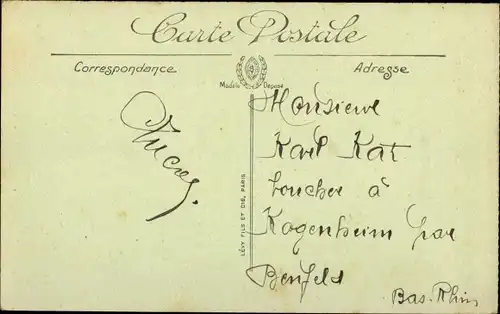 Carte Postale
Correspondance
Adresse
Modèle Déposé
Monsieur
Karl Kat
boucher à
Kogenheim par
Benfeld
Bas-Rhin
LÉVY FILS ET CIE, PARIS